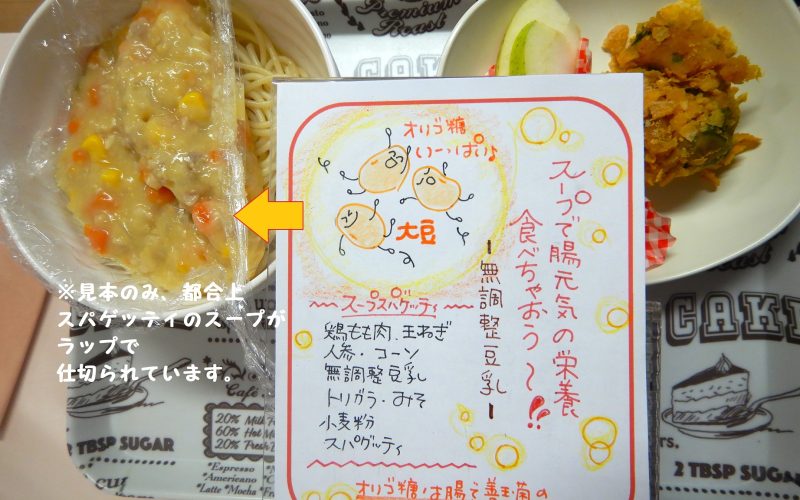 Premium
Roast
CAKE
オリゴ糖
いーっぱい♪
大豆
スープで腸元気の栄養
食べちゃおう〜!!
ー無調整豆乳ー
スープスパゲッティ
鶏もも肉、玉ねぎ
人参・コーン
無調整豆乳
トリガラ・みそ
小麦粉
スパゲッティ
オリゴ糖は腸で善玉菌の
※見本のみ、都合上
スパゲッティのスープが
ラップで
仕切られています。
20% Milk
60% Hot
20% Fresh
*Espresso
*Americano
*Latte *Mocha
2 TBSP SUGAR
CAKE
2 TBSP SUGAR